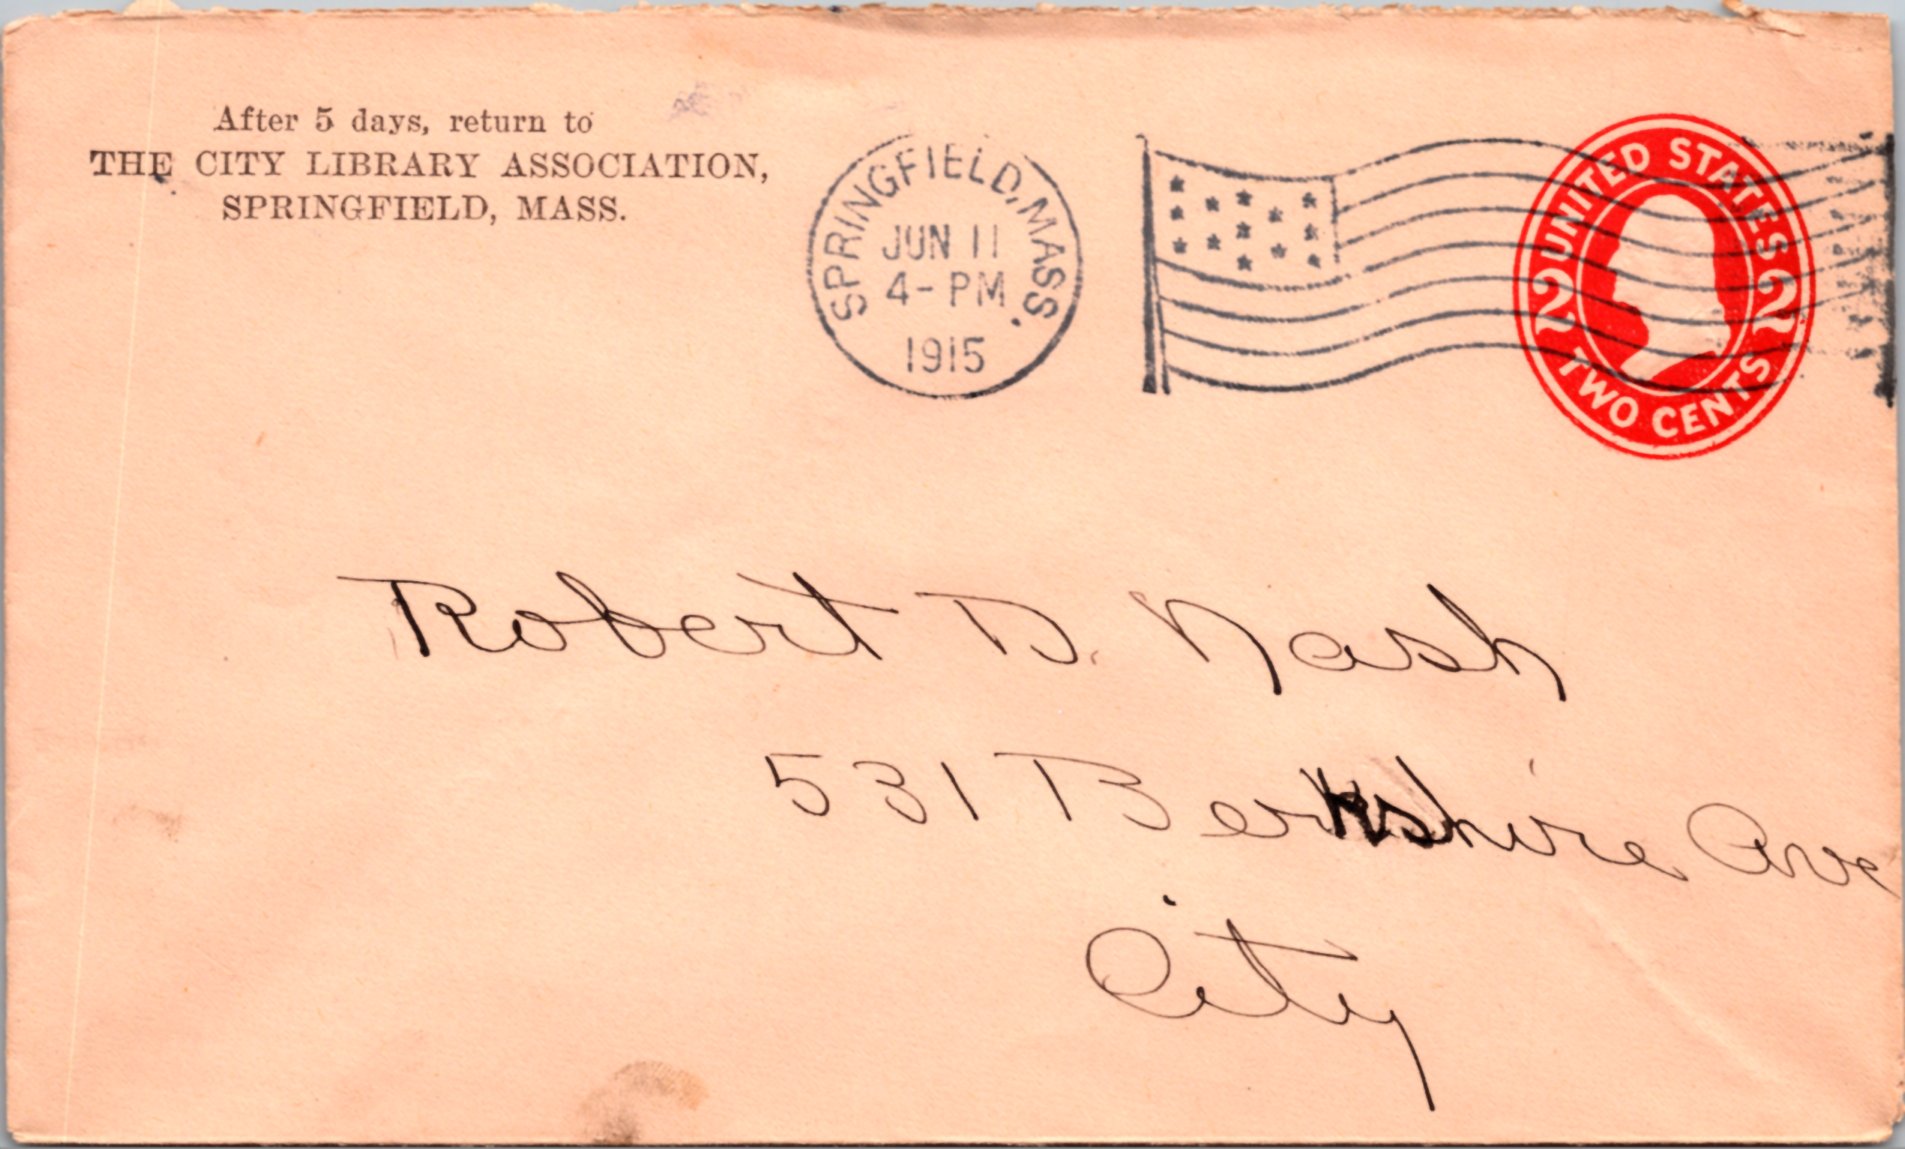 After 5 days, return to
THE CITY LIBRARY ASSOCIATION,
SPRINGFIELD, MASS.
SPRINGFIELD, MASS.
JUN 11
4-PM
1915
UNITED STATES
2 2
TWO CENTS
Robert D. Nash
531 Berkshire Ave
City